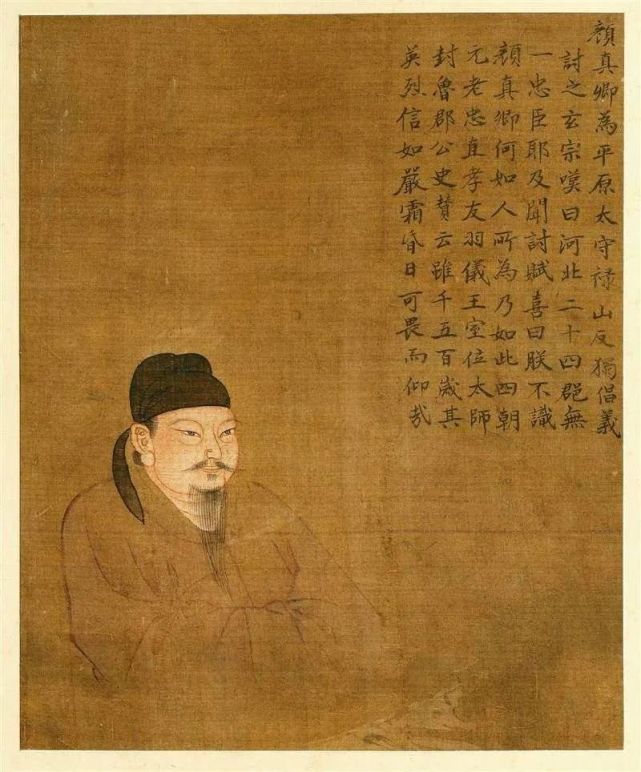 顔真卿為平原太守禄山反獨倡義
討之玄宗嘆曰河北二十四郡無
一忠臣耶及聞討賊喜曰朕不識
顔真卿何如人所為乃如此四朝
元老忠直孝友羽儀王室位太師
封魯郡公史賛云雖千五百歳其
英烈信如嚴霜烈日可畏而仰哉